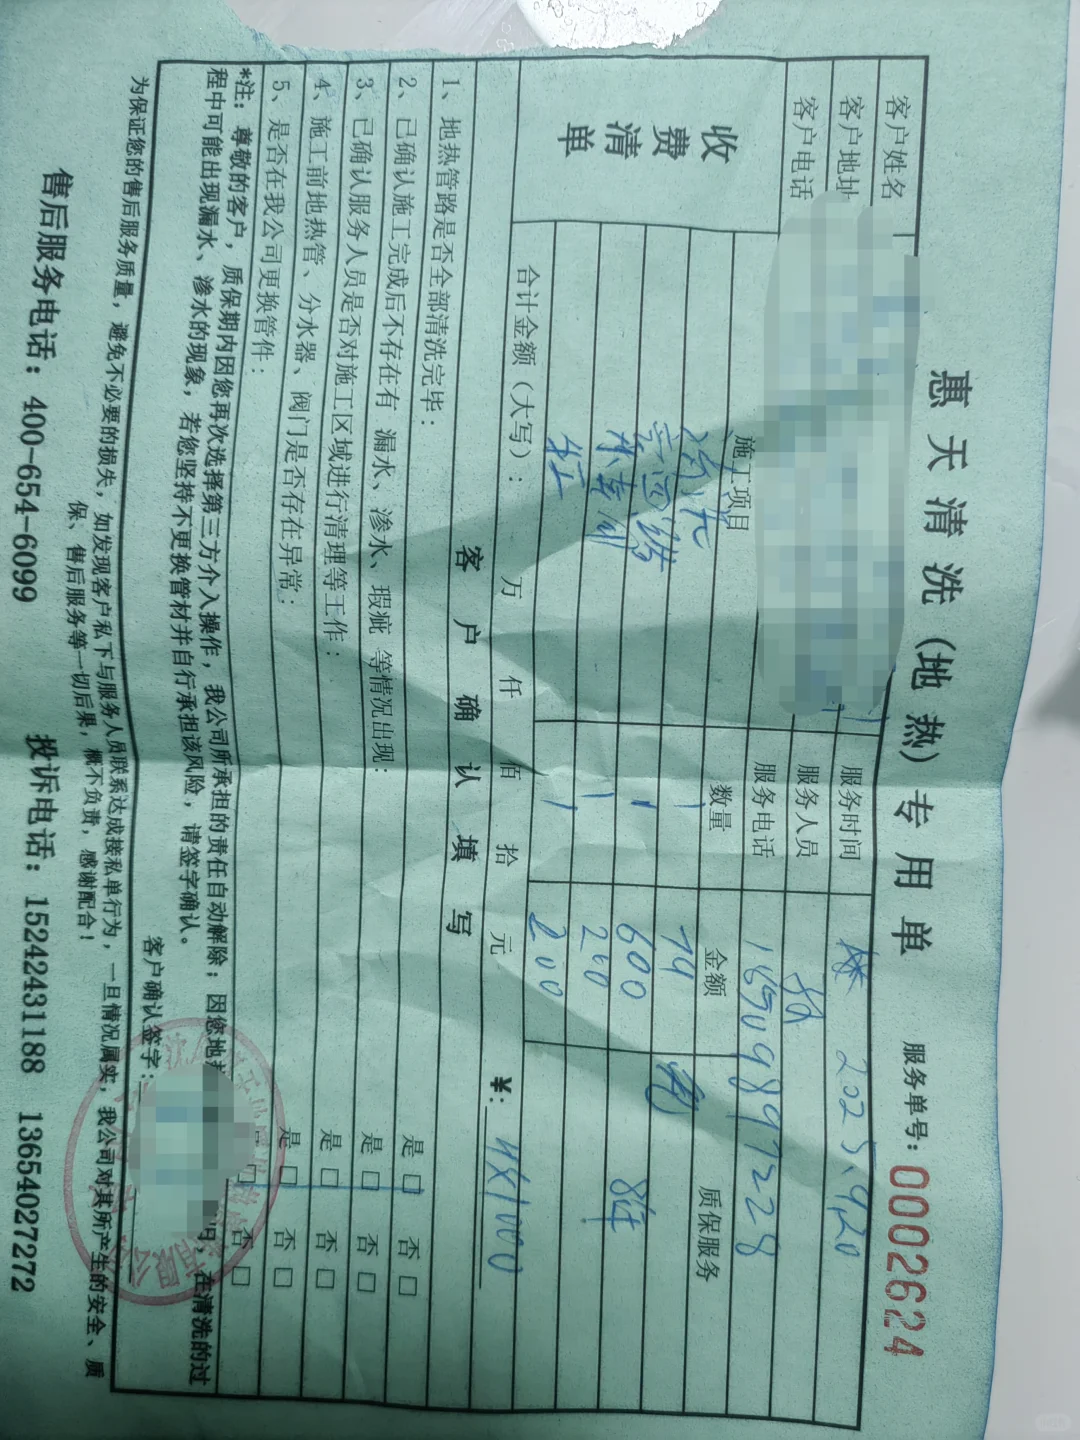 惠天清洗(地热)专用单
服务单号：0002624
客户姓名
服务时间 2023.9.20
客户地址
服务人员
客户电话
服务电话 16509897228
收费清单
施工项目 数量 金额 质保服务
清洗 1 74
1 600 8年
1 200
1 200
合计金额（大写）： 万 仟 佰 拾 元 ¥：1000
客户确认填写
1、地热管路是否全部清洗完毕： 是□ 否□
2、已确认施工完成后不存在有 漏水、渗水、瑕疵 等情况出现： 是□ 否□
3、已确认服务人员是否对施工区域进行清理等工作： 是□ 否□
4、施工前地热管、分水器、阀门是否存在异常： 是□ 否□
5、是否在我公司更换管件： □ 否□
*注：尊敬的客户，质保期内因您再次选择第三方介入操作，我公司所承担的责任自动解除；因您地 ，在清洗的过
程中可能出现漏水、渗水的现象，若您坚持不更换管材并自行承担该风险，请签字确认。
客户确认签字：
为保证您的售后服务质量，避免不必要的损失，如发现客户私下与服务人员联系达成接私单行为，一旦情况属实，我公司对其所产生的安全、质
保、售后服务等一切后果，概不负责，感谢配合！
售后服务电话：400-654-6099 投诉电话：15242431188 13654027272